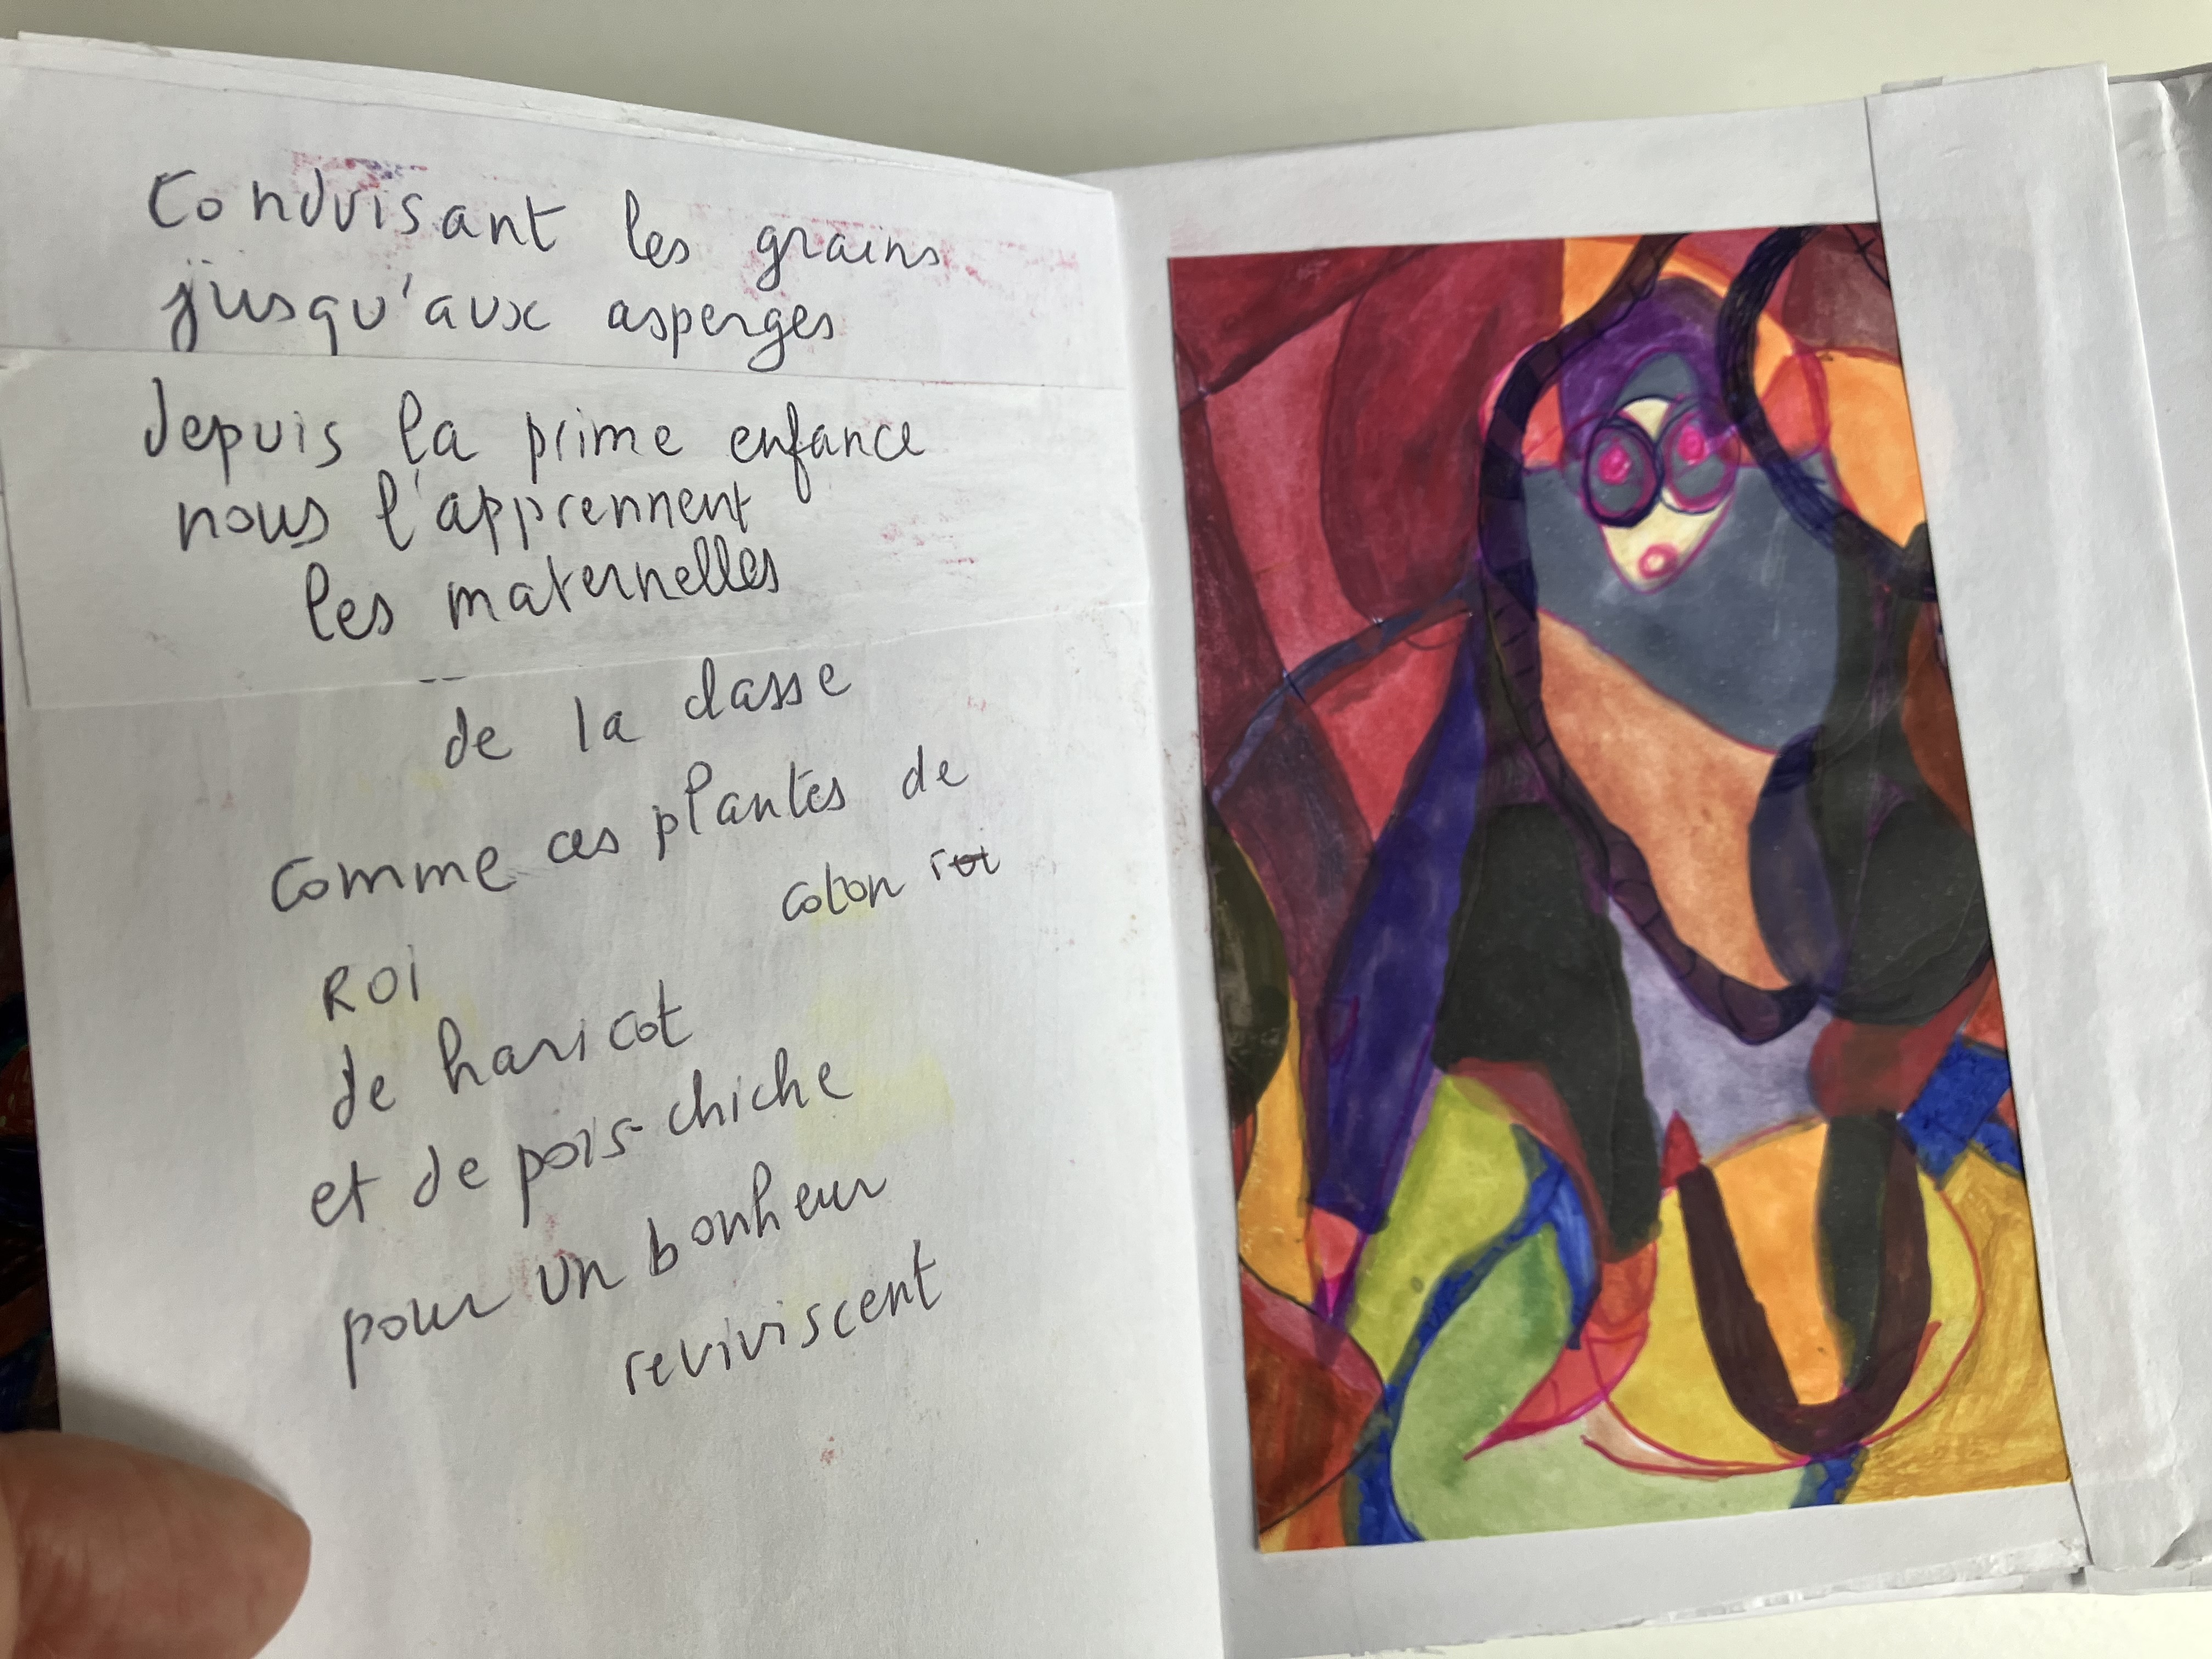 Conduisant les grains
jusqu'aux asperges
depuis la prime enfance
nous l'apprennent
les maternelles
de la classe
comme ces plantes de
coton roi
ROI
de haricot
et de pois-chiche
pour un bonheur
reviviscent